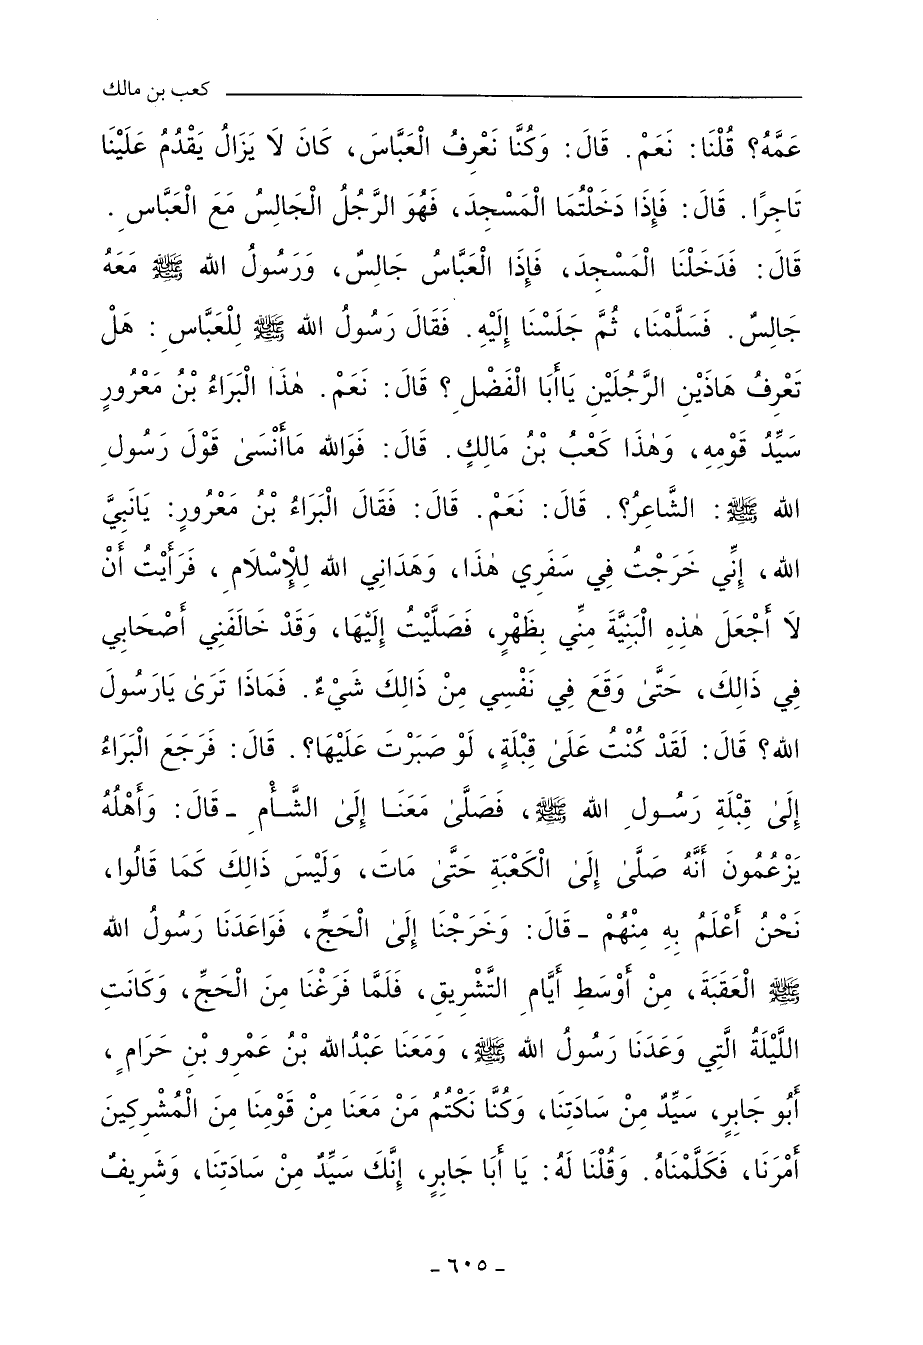 كعب بن مالك
عَمَّهُ؟ قُلْنَا: نَعَمْ. قَالَ: وَكُنَّا نَعْرِفُ الْعَبَّاسَ، كَانَ لاَ يَزَالُ يَقْدُمُ عَلَيْنَا
تَاجِرًا. قَالَ: فَإِذَا دَخَلْتُمَا الْمَسْجِدَ، فَهُوَ الرَّجُلُ الْجَالِسُ مَعَ الْعَبَّاسِ.
قَالَ: فَدَخَلْنَا الْمَسْجِدَ، فَإِذَا الْعَبَّاسُ جَالِسٌ، وَرَسُولُ الله ﷺ مَعَهُ
جَالِسٌ. فَسَلَّمْنَا، ثُمَّ جَلَسْنَا إِلَيْهِ. فَقَالَ رَسُولُ الله ﷺ لِلْعَبَّاسِ: هَلْ
تَعْرِفُ هَاذَيْنِ الرَّجُلَيْنِ يَاأَبَا الْفَضْلِ؟ قَالَ: نَعَمْ. هٰذَا الْبَرَاءُ بْنُ مَعْرُورٍ
سَيِّدُ قَوْمِهِ، وَهٰذَا كَعْبُ بْنُ مَالِكٍ. قَالَ: فَوَالله مَاأَنْسَىٰ قَوْلَ رَسُولِ
الله ﷺ: الشَّاعِرُ؟. قَالَ: نَعَمْ. قَالَ: فَقَالَ الْبَرَاءُ بْنُ مَعْرُورٍ: يَانَبِيَّ
الله، إِنِّي خَرَجْتُ فِي سَفَرِي هٰذَا، وَهَدَانِي الله لِلْإِسْلَامِ، فَرَأَيْتُ أَنْ
لَا أَجْعَلَ هٰذِهِ الْبَنِيَّةَ مِنِّي بِظَهْرٍ، فَصَلَّيْتُ إِلَيْهَا، وَقَدْ خَالَفَنِي أَصْحَابِي
فِي ذَالِكَ، حَتَّىٰ وَقَعَ فِي نَفْسِي مِنْ ذَالِكَ شَيْءٌ. فَمَاذَا تَرَىٰ يَارَسُولَ
الله؟ قَالَ: لَقَدْ كُنْتُ عَلَىٰ قِبْلَةٍ، لَوْ صَبَرْتَ عَلَيْهَا؟. قَالَ: فَرَجَعَ الْبَرَاءُ
إِلَىٰ قِبْلَةِ رَسُولِ الله ﷺ، فَصَلَّىٰ مَعَنَا إِلَىٰ الشَّأْمِ - قَالَ: وَأَهْلُهُ
يَزْعُمُونَ أَنَّهُ صَلَّىٰ إِلَىٰ الْكَعْبَةِ حَتَّىٰ مَاتَ، وَلَيْسَ ذَالِكَ كَمَا قَالُوا،
نَحْنُ أَعْلَمُ بِهِ مِنْهُمْ - قَالَ: وَخَرَجْنَا إِلَىٰ الْحَجِّ، فَوَاعَدَنَا رَسُولُ الله
ﷺ الْعَقَبَةَ، مِنْ أَوْسَطِ أَيَّامِ التَّشْرِيقِ، فَلَمَّا فَرَغْنَا مِنَ الْحَجِّ، وَكَانَتِ
اللَّيْلَةُ الَّتِي وَعَدَنَا رَسُولُ الله ﷺ، وَمَعَنَا عَبْدُالله بْنُ عَمْرِو بْنِ حَرَامٍ،
أَبُو جَابِرٍ، سَيِّدٌ مِنْ سَادَتِنَا، وَكُنَّا نَكْتُمُ مَنْ مَعَنَا مِنْ قَوْمِنَا مِنَ الْمُشْرِكِينَ
أَمْرَنَا، فَكَلَّمْنَاهُ. وَقُلْنَا لَهُ: يَا أَبَا جَابِرٍ، إِنَّكَ سَيِّدٌ مِنْ سَادَتِنَا، وَشَرِيفٌ
- ٦٠٥ -